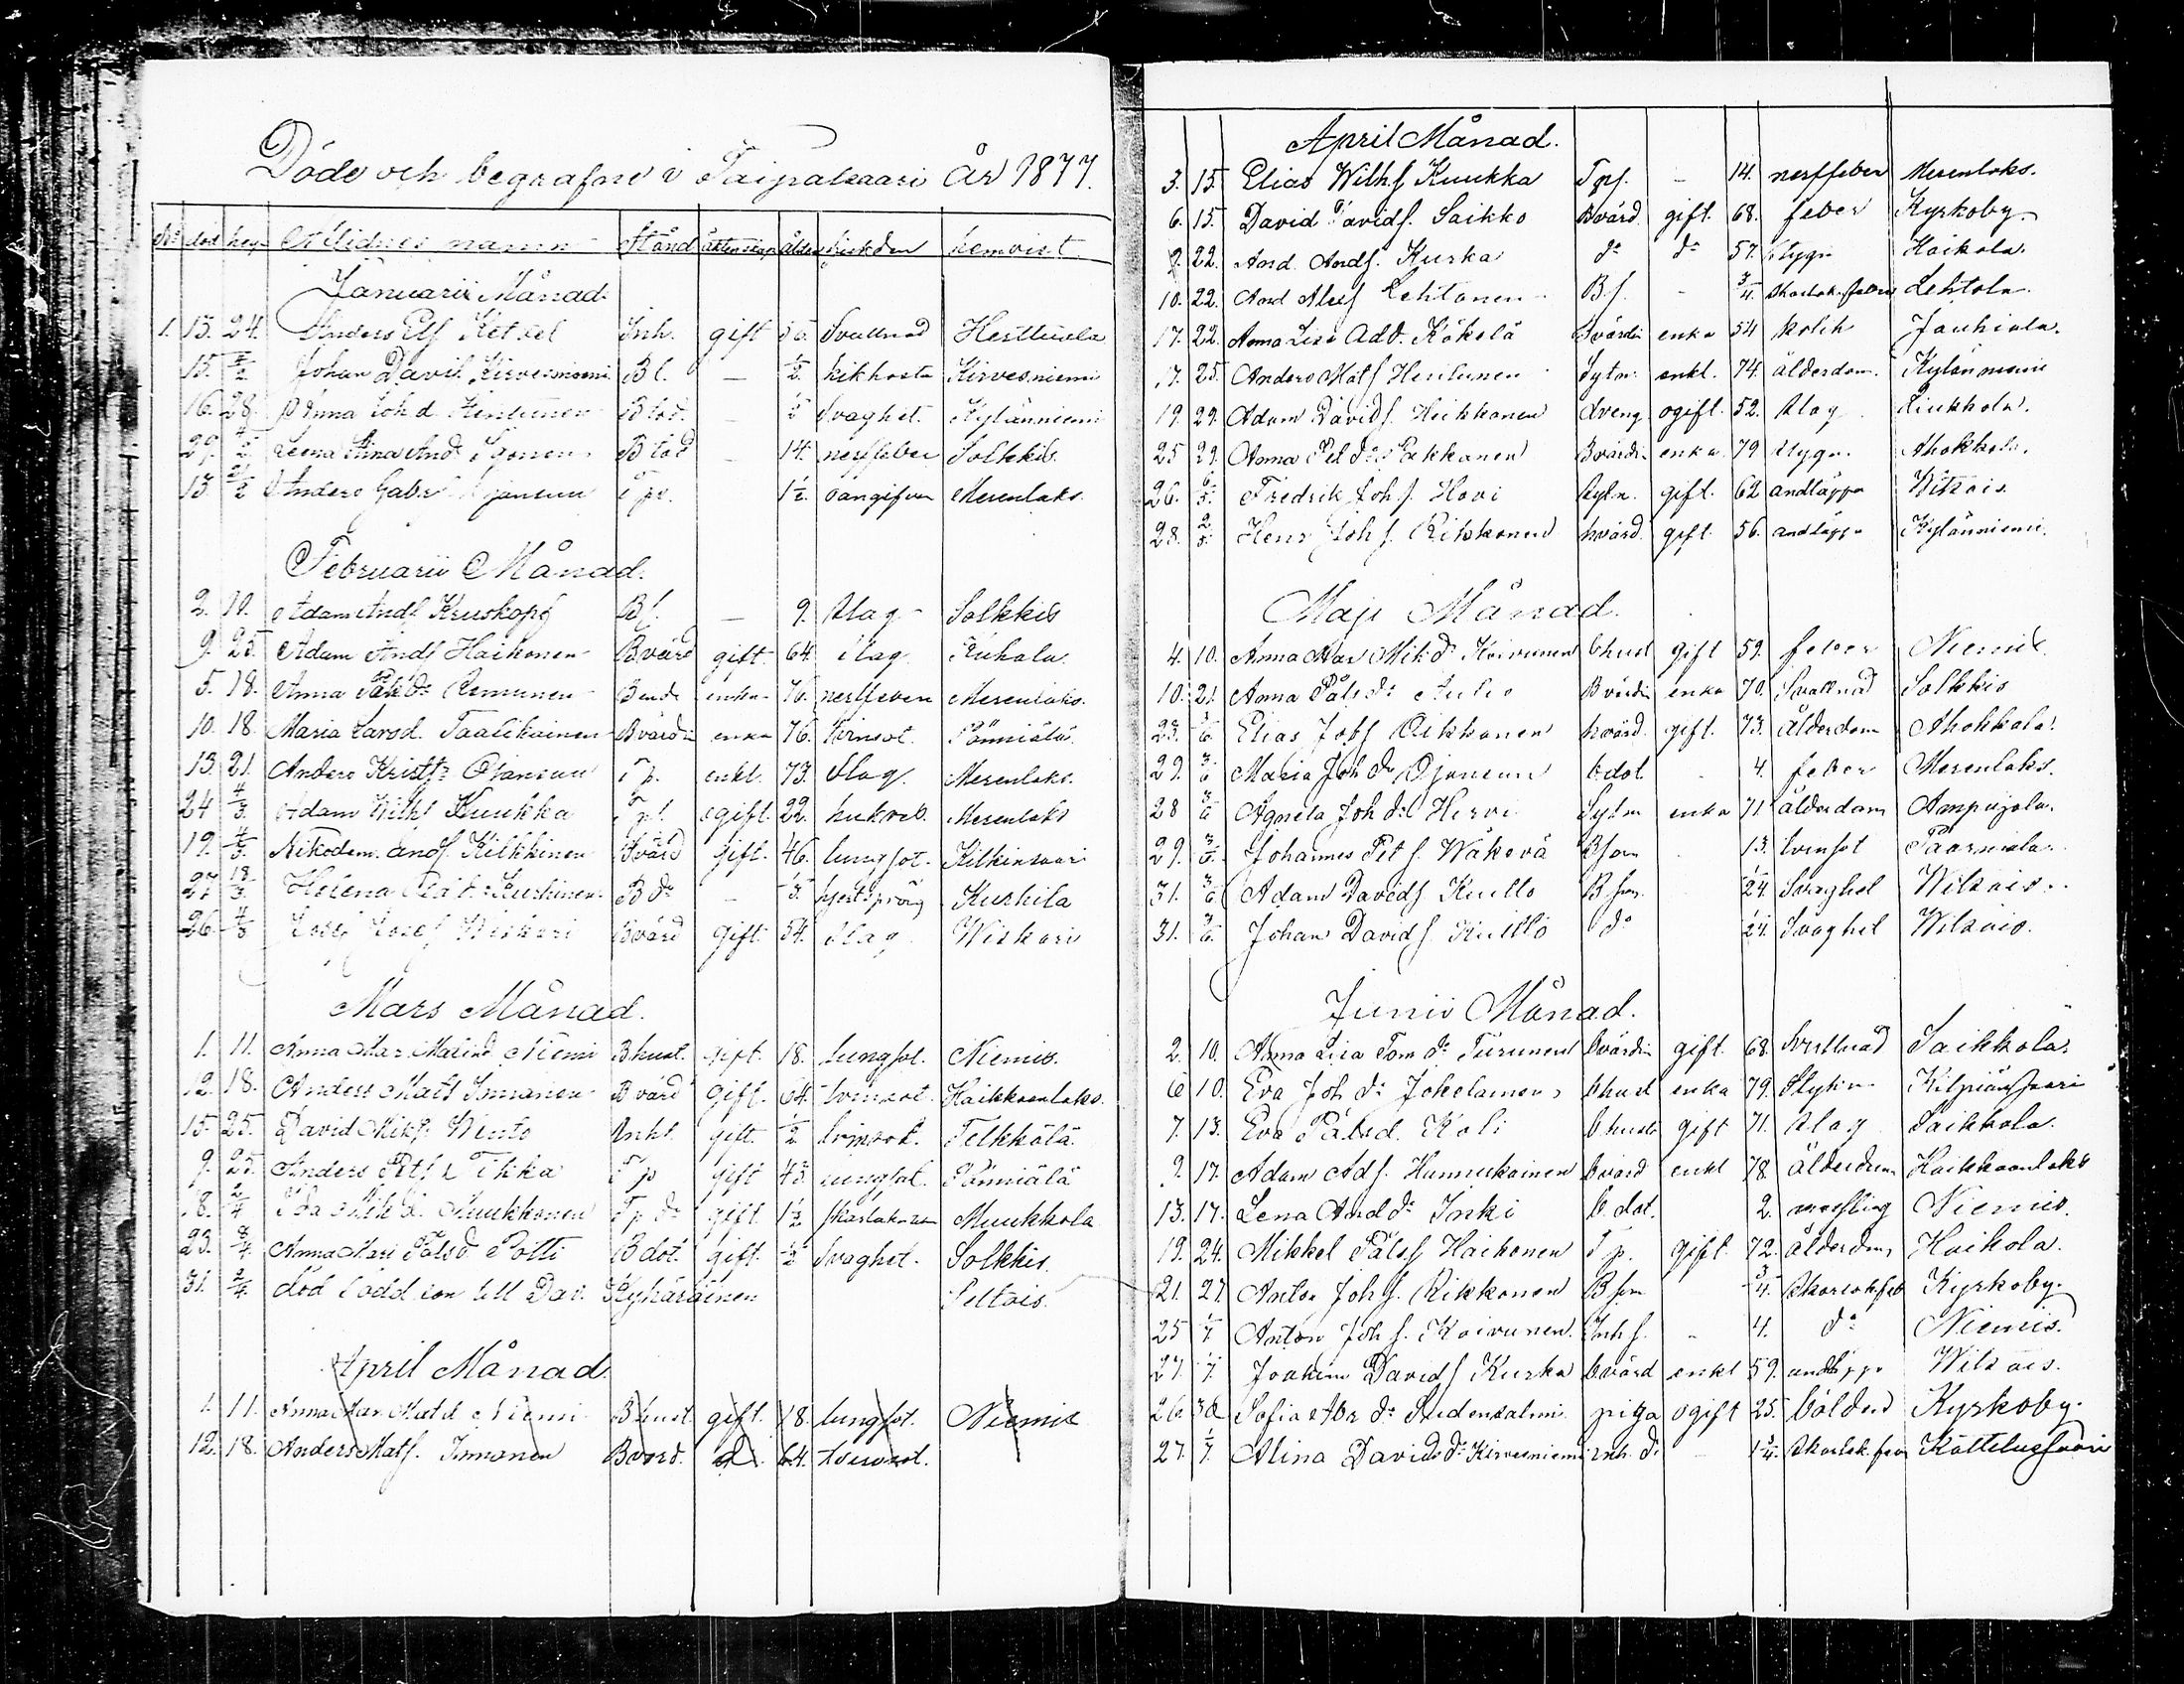 Döde och begrafne i Taipalsaari År 1877.
No död begr Aflidnes namn Stånd äktenskap ålder sjukdom hemvist
Januarii Månad.
1. 13. 24. Anders Elf Inh. gift Svullnad Herttuala
15. Johan David Kirvesniemi B f. — 1/2 kikhosta Kirvesniemi
16. 28. Anna Joh d. Kentunen B dod. — Svaghet. Kylänniemi
29. Leena Stina And B död — 14. nerffeber Solkkis.
13. Anders Gabr. 1 1/2. oangifven Merenlaks.
Februarii Månad.
2. 19. Adam Andf Kruskopf Bf. — 9. slag Solkkis
9. 25. Adam Andf Haikonen Bvärd gift. 64. slag
5. 18. Anna enka 76. nerffeber Merenlaks.
10. 18. Maria Larsd. Taalikainen Bvärdin enka 76. tvinsot. Pönniälä.
13. 21. Anders Kristf. enkl. 73. Slag. Merenlaks.
24 4/3. Adam Wilhf Kuukka ogift. 22. Merenlaks
19. 4/3. Nikodem. Andf. Kilkkinen Bvärd gift. 46. lungsot. Kilkinsaari
27 18/3. Helena Kurkinen B dr — hjertspräng Kurhila
26. 4/3 Josef Wiskari Bvärd gift. 54. Slag Wiskari
Mars Månad.
1. 11. Anna Mar. Matsd. Niemi B hust. gift. 18. lungsot. Niemis.
12. 18. Anders Mats Inmanen B värd gift. 64. tvinsot. Haikkaanlaks.
15 25. David Mikf. Wento Inht. gift. 1/2 tvinsot. Telkkälä
9. 25. Anders Petf Tikka T p gift 43. lungsot. Pönniälä
18. 2/4 Ida Mik d. Muukkonen T p dr gift. 1 1/2 skarlakan Muukkola
23. 8/4. Anna Mari Pålsd Potti B dot. gift. 1/2 Svaghet. Solkkis.
31. 2/4. död född son till Dav. Kyhäräinen Peltois.
April Månad.
1. 11. Anna Mar. Matsd Niemi B hust. gift. 18. lungsot. Niemis
12. 18. Anders Matf. Inmanen B värd. d 64. tvinsot.
April Månad.
3. 15. Elias Wilh.f Kuukka T pf. — 14. nerffeber Merenlaks.
6. 15. David Davidf. Saikko Bvärd gift. 68. feber Kyrkoby.
9. 22. And. Andf. Kurka do do 57. Stygn Haikola.
10. 22. And Alexf Lehtonen Bf. — 3/4. skarlak.feber Lehtola.
17. 22. Anna Lisa Ad d. Kökölä Bvärdin enka 54 kolik Jauhiala.
17. 25. Anders Matf Hentunen Sytn. enkl. 74. ålderdom. Kylänniemi
19. 29. Adam Davidf. Heikkonen dreng ogift. 52. Slag Liukkola.
25 29. Anna Pet dr Pakkanen Bvärdin enka 79 stygn. Ahokkala.
26. 6/5. Fredrik Joh f. Hovi Sytn. gift. 62 andtäppa Witsais.
28. 2/5. Henr Joh f. Rikkonen bvärd. gift. 56. andtäppa Kylänniemi.
Maji Månad.
4. 10. Anna Mar Mik dr Koivunen bhust gift 59. feber Niemis.
10. 21. Anna Påls dr Aulio Bvärdin enka 70. Svullnad Solkkis
23. 3/6. Elias Johf Rikkonen bvärd. gift. 73. ålderdom Ahokkala.
29. 3/6 Maria Joh dr Ojansuu bdot. 4. feber Merenlaks.
28 3/6 Agneta Joh dr Hirvi Sytn enka 71. ålderdom Ampujala.
29. 3/6. Johannes Pet f. Wäkevä Bson 13. tvinsot Paarniala.
31. 3/6. Adam Davidf Kuitto B son 1/24. Svaghet Witsais.
31. 3/6. Johan Davidf Kuitto do 1/24. Svaghet Witsais.
Junii Månad.
2. 10. Anna Lisa Tom dr Turunen bvärdin gift. 68. Svullnad Saikkola.
6 10. Eva Joh dr Jokelainen bhust enka 79. Stygn Kilpiänsaari
7. 13. Eva Pålsd. Koli bhust gift 71. Slag Saikkola.
9. 17. Adam Adf. Hannukainen bvärd enkl 78. ålderdom Haikkaanlaks
13. 17. Lena And dr Inki b. dot. 2. messling Niemis.
19. 24. Mikkel Pålsf Haikonen T p. gift. 72. ålderdom Haikola.
21. 27 Anton Joh f. Rikkonen B son 3/4. skarlakfeb Kyrkoby.
25 1/7 Anton Joh f. Koivunen. Inh f. — 4. do Niemis.
27. 1/7. Joakim Davidf Kurka bvärd enkl 59. andtäppa Witsais.
26. 30. Sofia Abr dr Sudensalmi piga ogift 25. båldnd Kyrkoby.
27. 1/7. Alina Davids dr Kirvesniemi Inh. dr — 1 3/4. skarlak.feb Kättelussaari